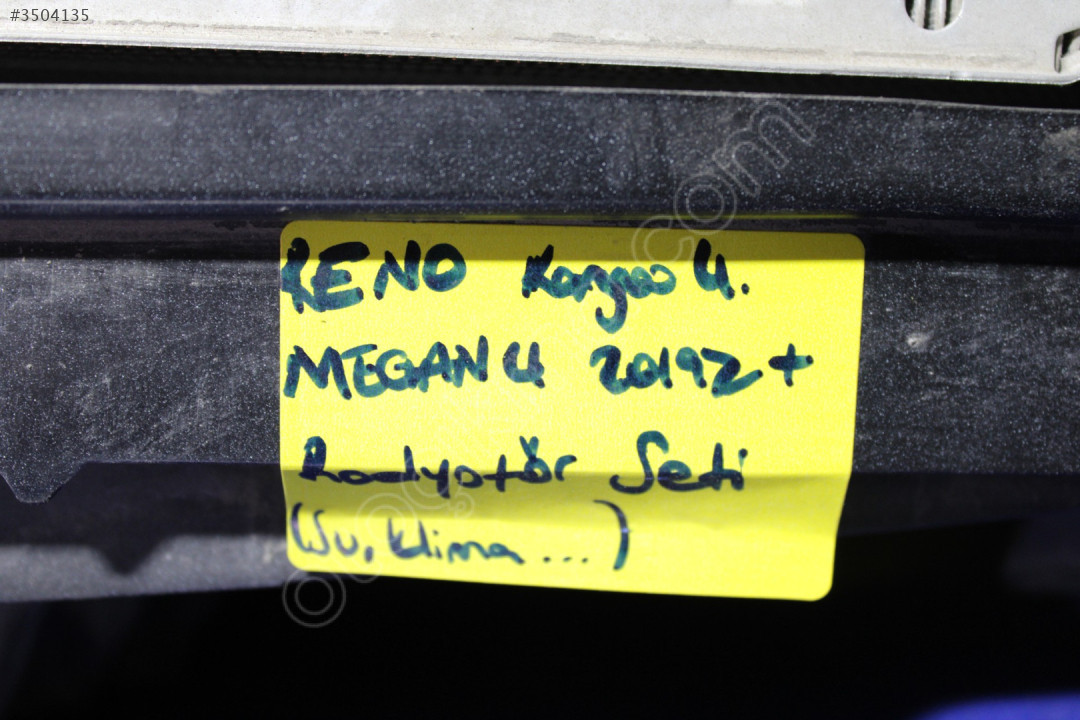 #3504135
RENO Kangoo 4.
MEGAN 4 20192+
Radyatör Seti
(Su, klima...)